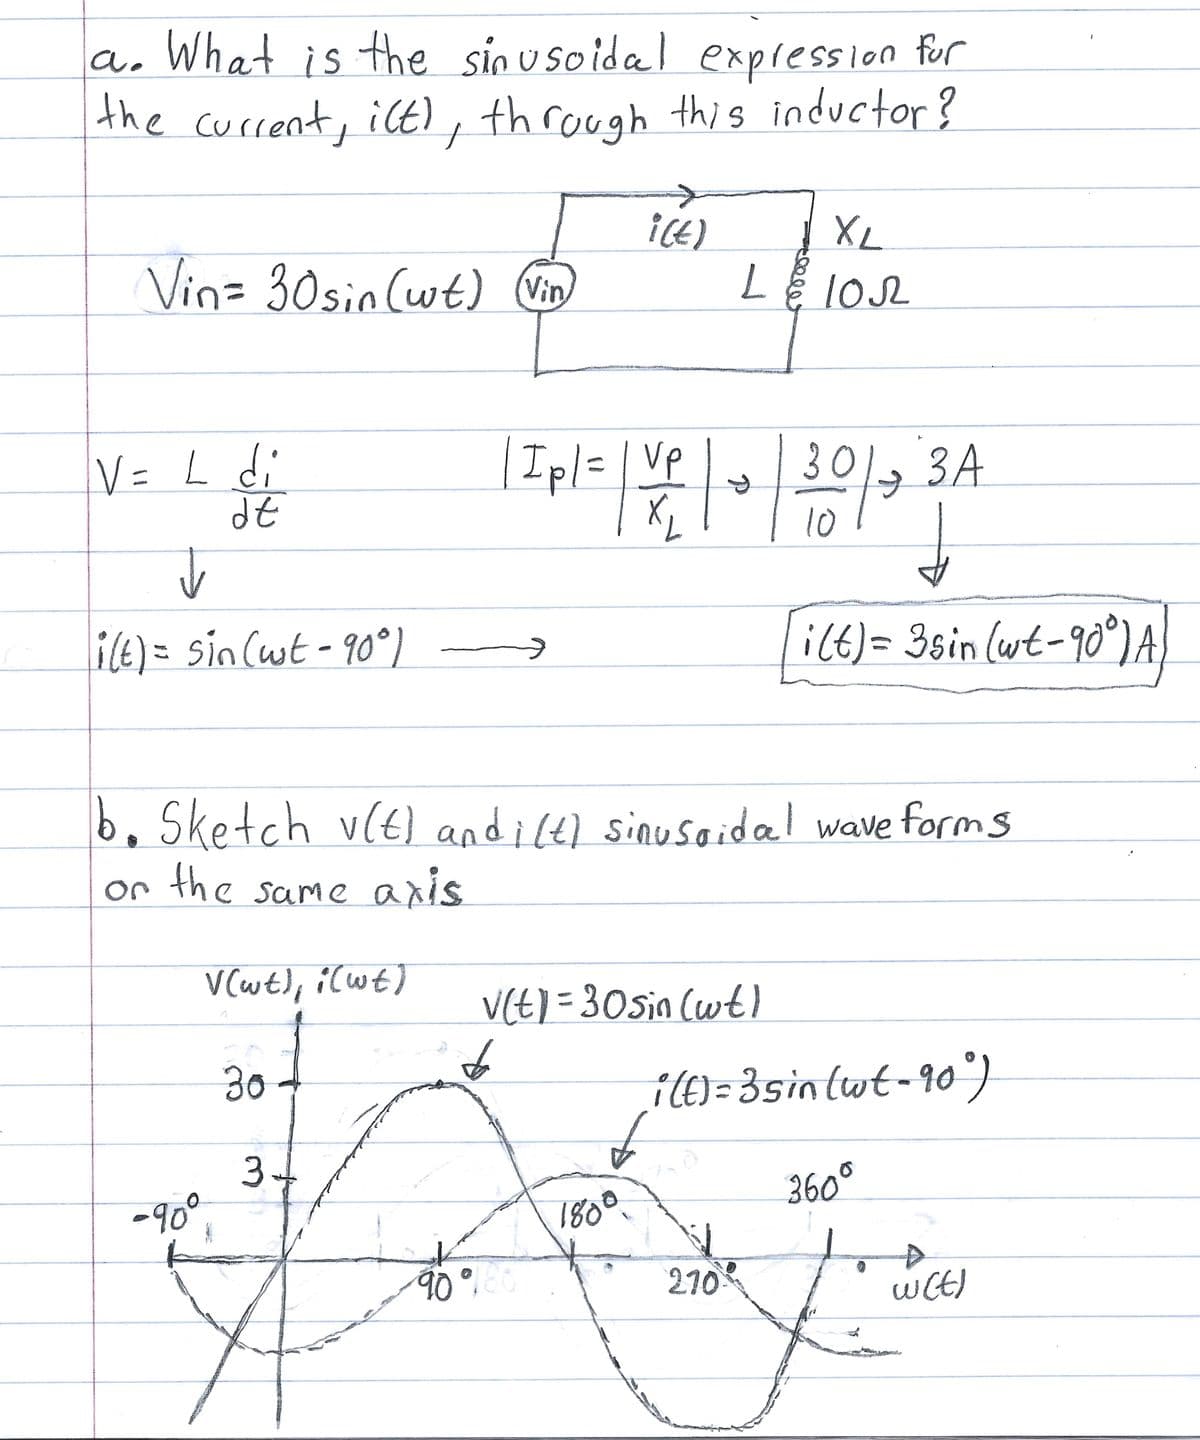 a. What is the sinusoidal expression for
the current, i(t), through this inductor?
i(t)
XL
Vin= 30sin(wt)
Vin
L
10Ω
V= L di/dt
|Ip|= |Vp/XL| → |30/10| → 3A
↓
i(t)= sin(wt-90°) → i(t)= 3sin(wt-90°)A
b. Sketch v(t) and i(t) sinusoidal wave forms
on the same axis
V(wt), i(wt)
v(t)=30sin(wt)
30
i(t)=3sin(wt-90°)
3
-90°
180°
360°
90°
270°
w(t)